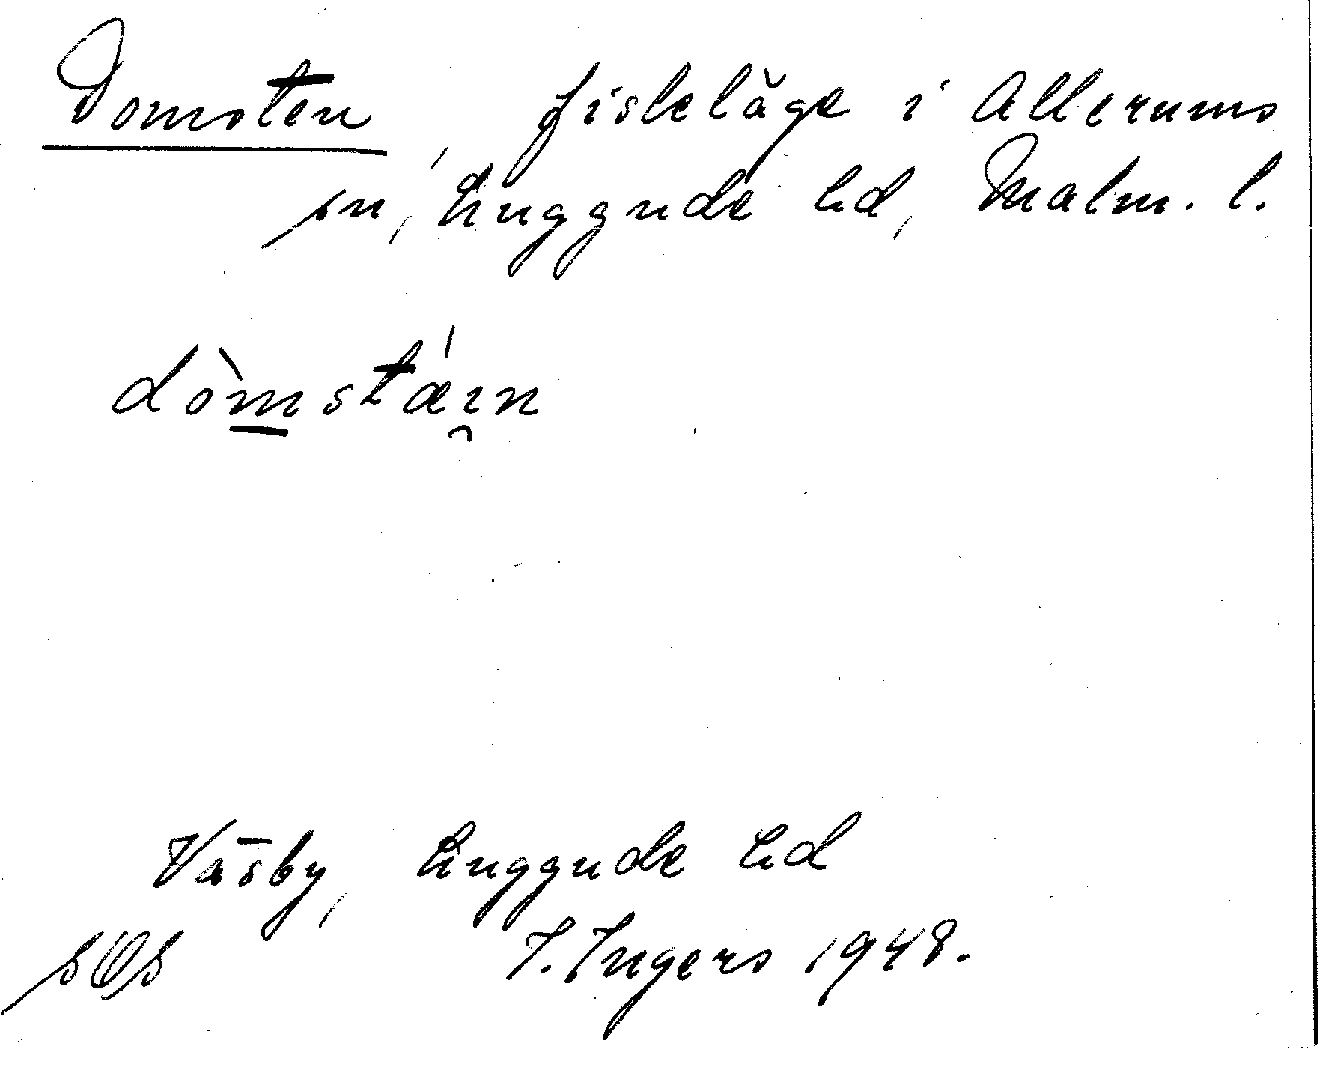 Domsten, fiskeläge i Allerums
sn, Luggude hd, Malm. l.
dòmstáın
Väsby, Luggude hd
I. Ingers 1948.